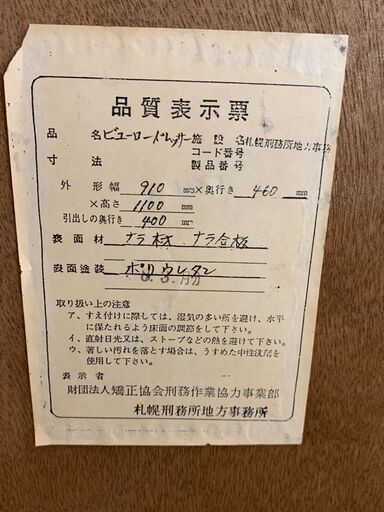 品質表示票
品名 ビューロードレッサー 施設名 札幌刑務所地方事務
コード番号
寸法 製品番号
外形幅 910 mm×奥行き 460 mm
×高さ 1100 mm
引出しの奥行き 400 mm
表面材 ナラ材 ナラ合板
表面塗装 ポリウレタン
取り扱い上の注意
ア、すえ付けに際しては、湿気の多い所を避け、水平
に保たれるよう床面の調節をして下さい。
イ、直射日光又は、ストーブなどの熱を避けて下さい。
ウ、著しい汚れを落とす場合は、うすめた中性洗剤を
使用して下さい。
表示者
財団法人矯正協会刑務作業協力事業部
札幌刑務所地方事務所